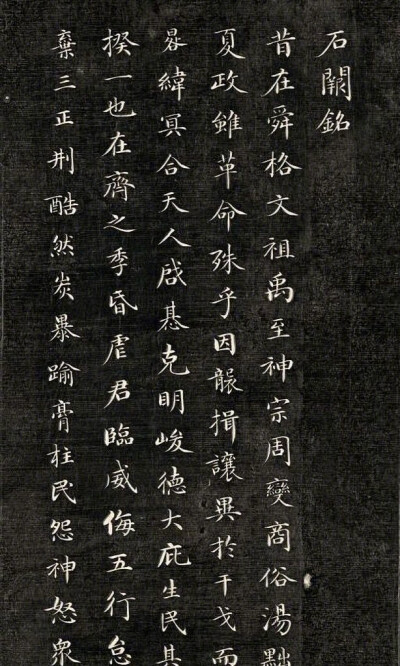 石闕銘
昔在舜格文祖禹至神宗周變商俗湯黜
夏政雖革命殊乎因襲揖讓異於干戈而
晷緯冥合天人啟惎克明峻德大庇生民其
揆一也在齊之季昏虐君臨威侮五行怠
棄三正刑酷然炭暴踰膏柱民怨神怒衆